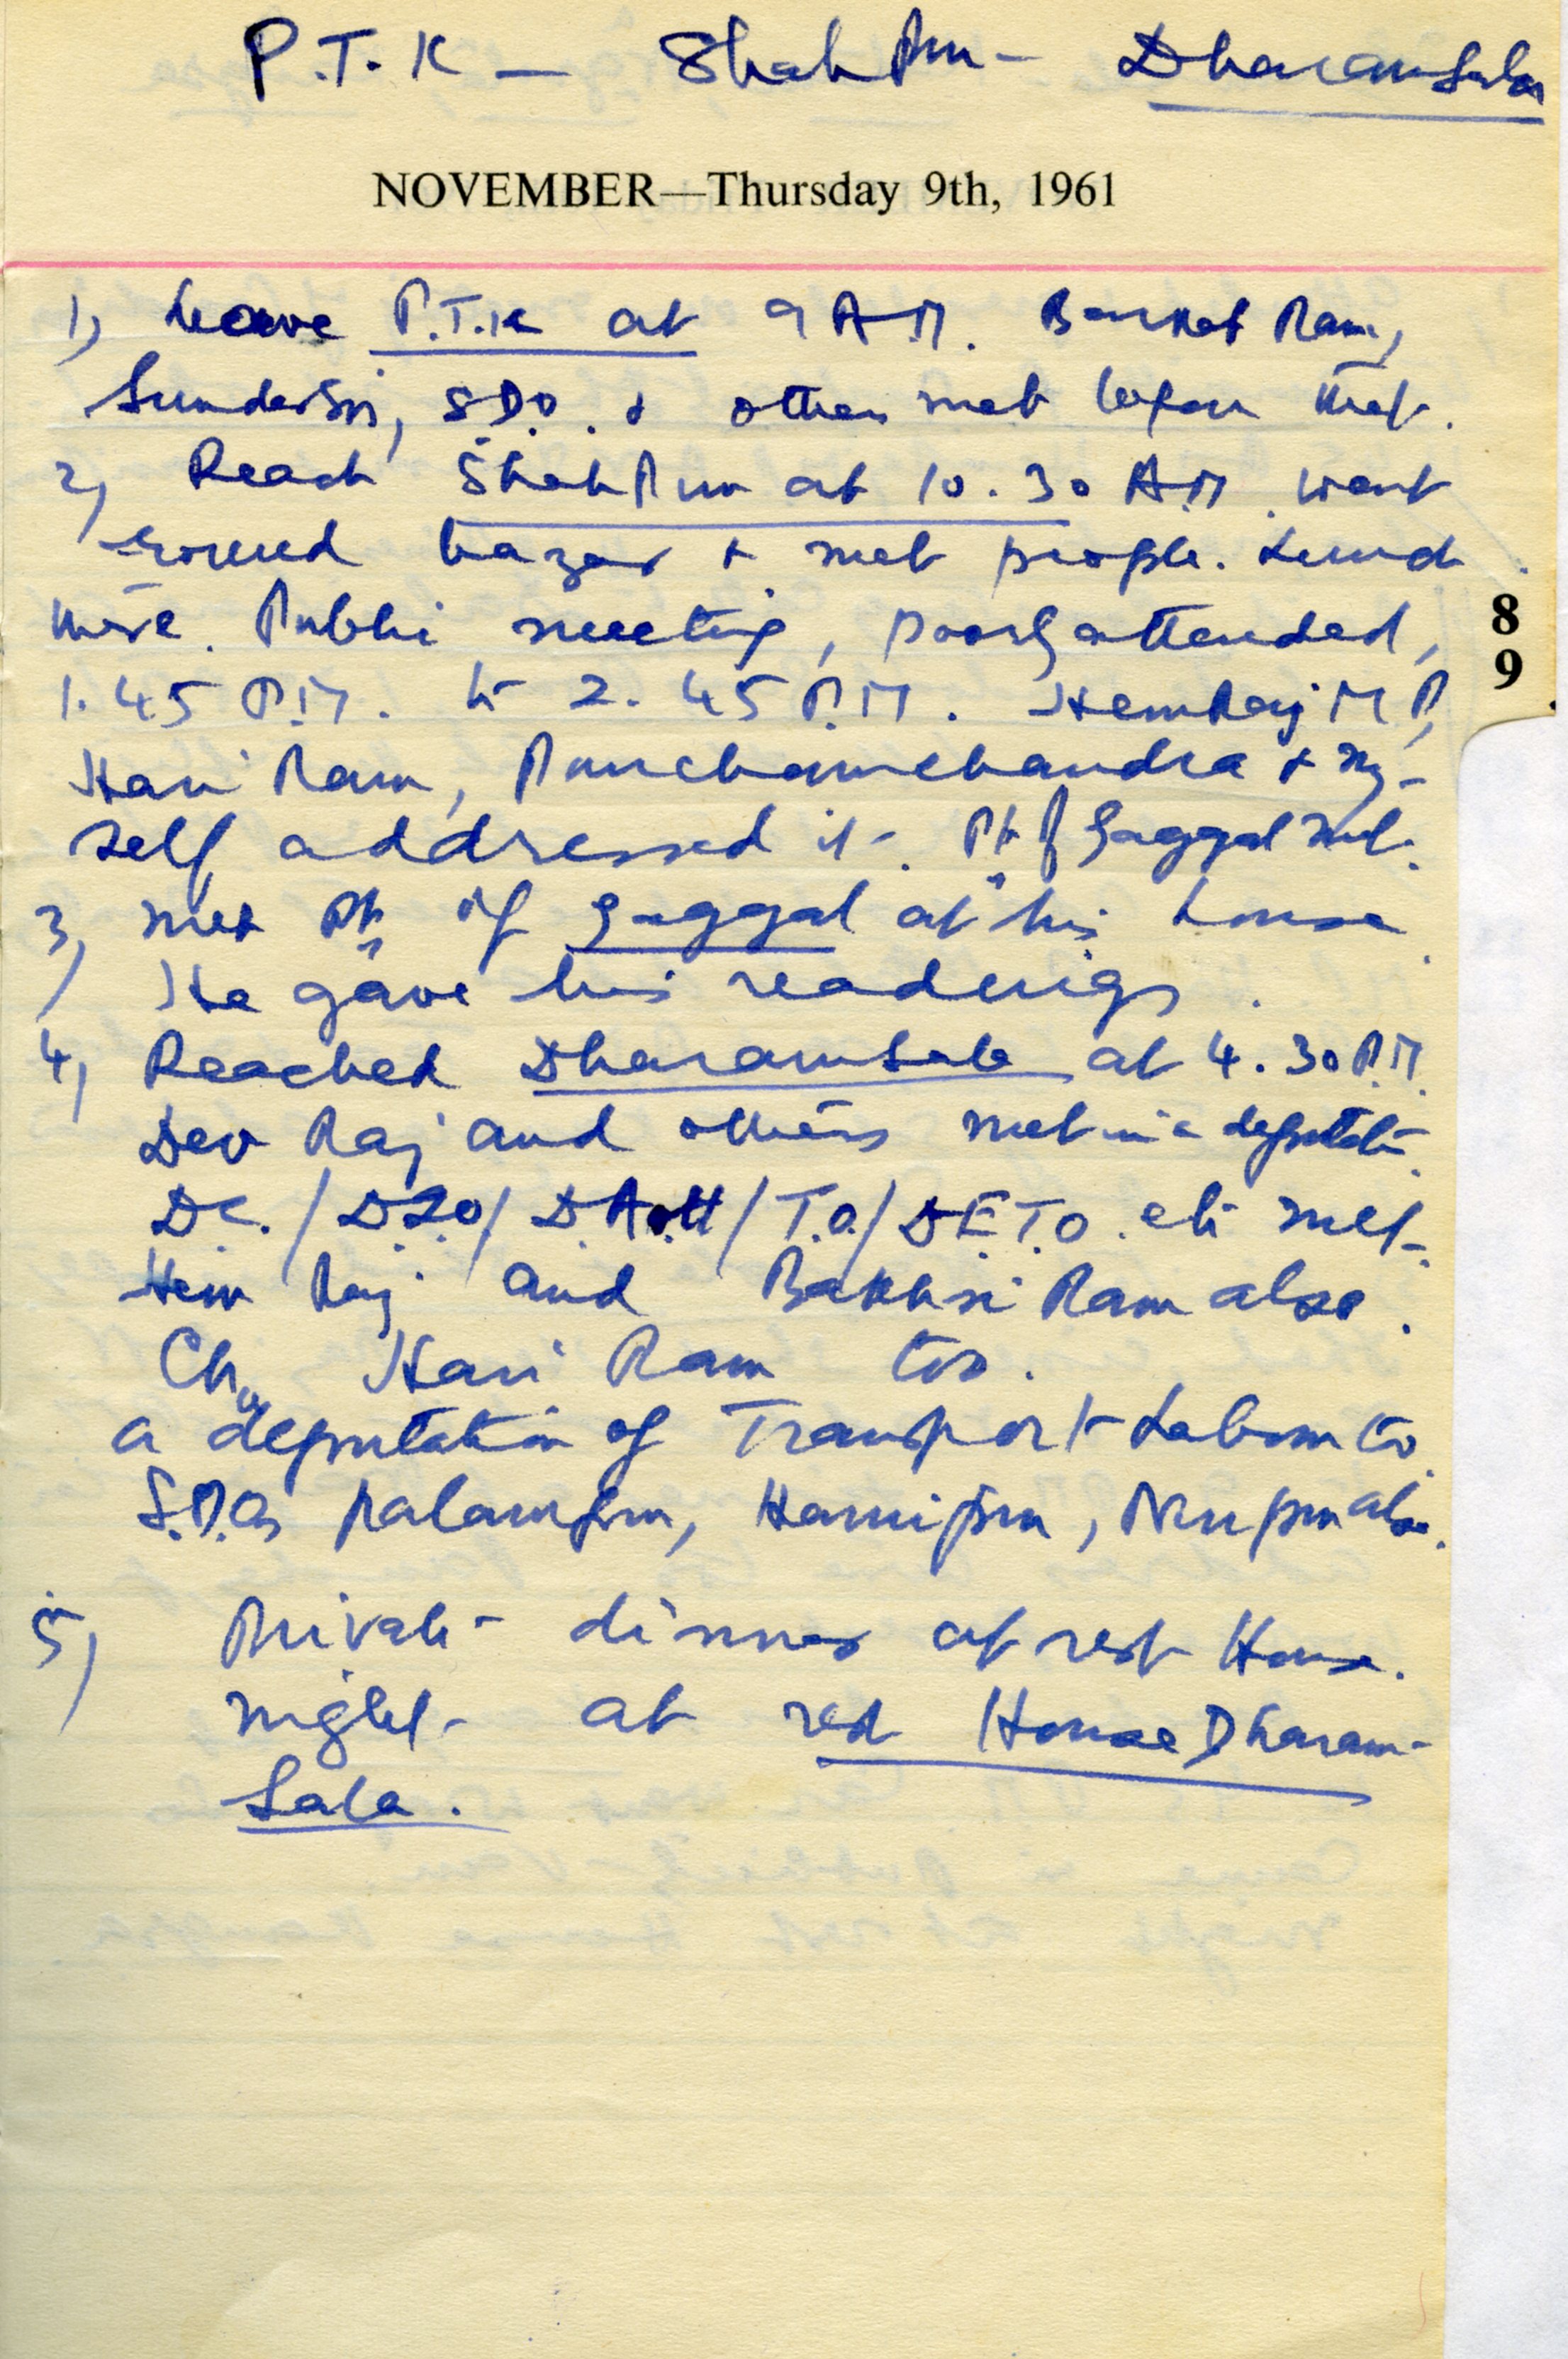 P.T.K — Shahpur — Dharamsala
NOVEMBER—Thursday 9th, 1961
1) Leave P.T.K at 9 A.M. Barkat Ram,
SDO. & others met before that.
2) Reach Shahpur at 10.30 AM. Went
round bazar & met people. Lunch
there. Public meeting, poorly attended,
8
9
1.45 P.M. to 2.45 P.M. HemRaj M P,
Hari Ram, & my-
self addressed it. Pt of Gaggal met.
3) met Pt of Gaggal at his house
He gave his readings.
4) Reached Dharamsala at 4.30 P.M.
Dev Raj and others met in a deputation.
DC./ / / T.O/ D.E.T.O. etc met.
Hem Raj and Bakhsi Ram also.
Ch. Hari Ram too.
a deputation of Transport Labour too.
S.D.Os Palampur, Hamirpur, Nurpur also.
5) Private dinner at rest House.
night at rest House Dharam-
Sala.